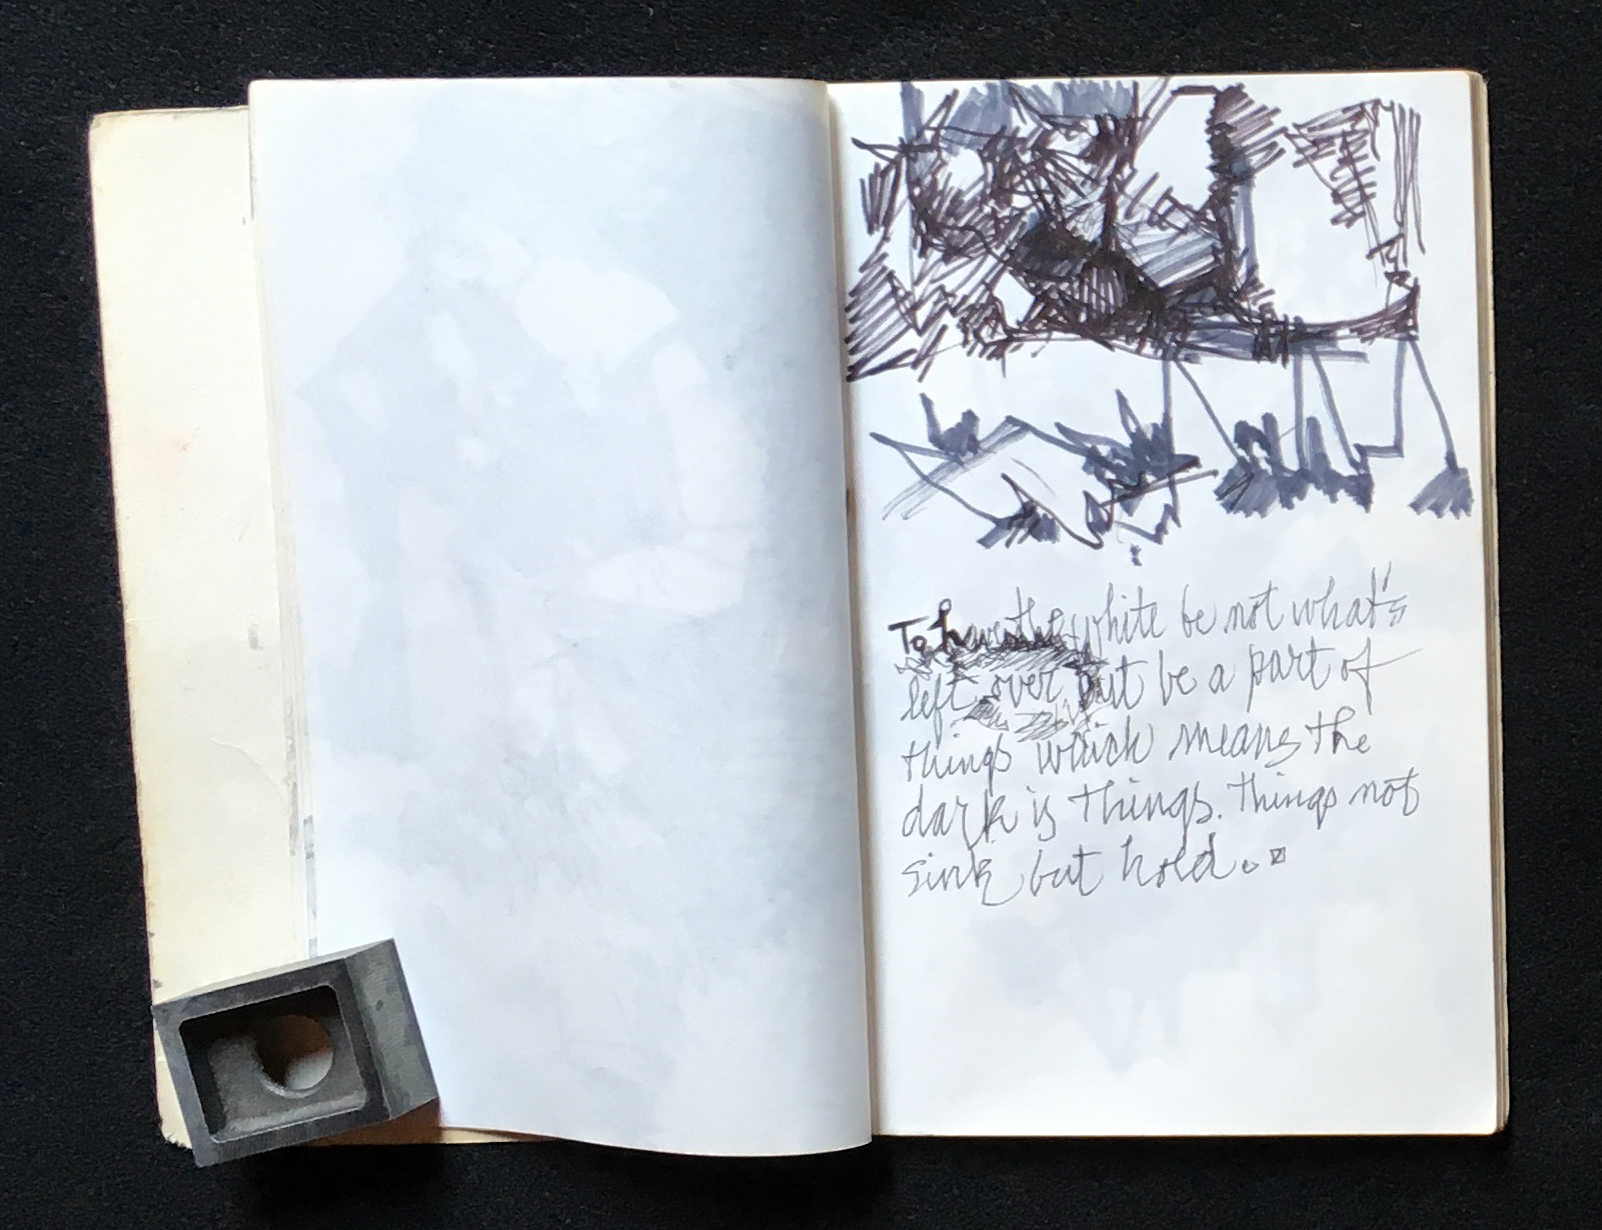 To have the white be not what's
left over but be a part of
things which means the
dark is things. Things not
sink but hold.